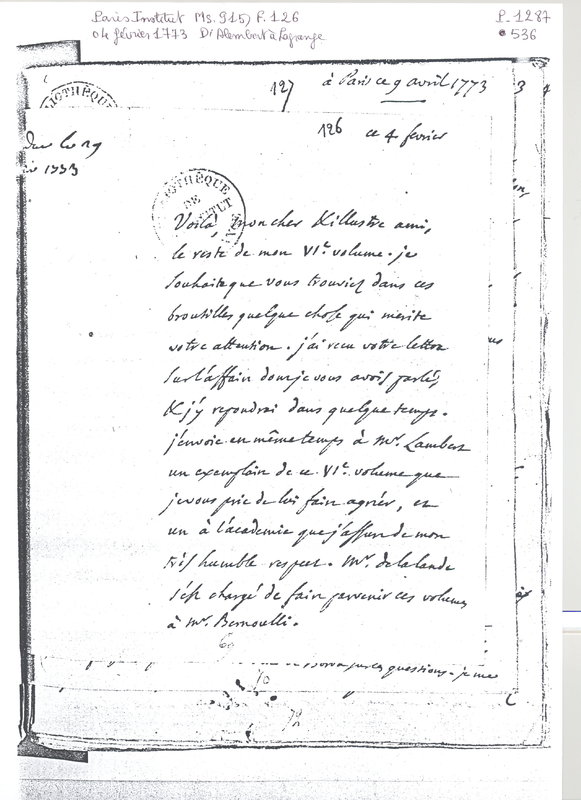 Paris Institut Ms. 915, F. 126
P. 1287
04 février 1773 D'Alembert à Lagrange
536
127
à Paris ce 9 avril 1773
3
4
126
ce 4 fevrier
le 19
1773
BIOTHÈQUE
DE
Voilà, mon cher & illustre ami,
le reste de mon VIe. volume. je
souhaite que vous trouviez dans ces
broutilles quelque chose qui merite
votre attention. j'ai reçu votre lettre
sur l'affaire dont je vous avois parlé,
& j'y repondrai dans quelque temps.
j'envoie en même temps à Mr. Lambert
un exemplaire de ce VIe. volume que
je vous prie de lui faire agréer, et
un à l'académie que j'assure de mon
très humble respect. Mr. de la lande
s'est chargé de faire parvenir ces volumes
à Mr. Bernoulli.
sur les questions. je me